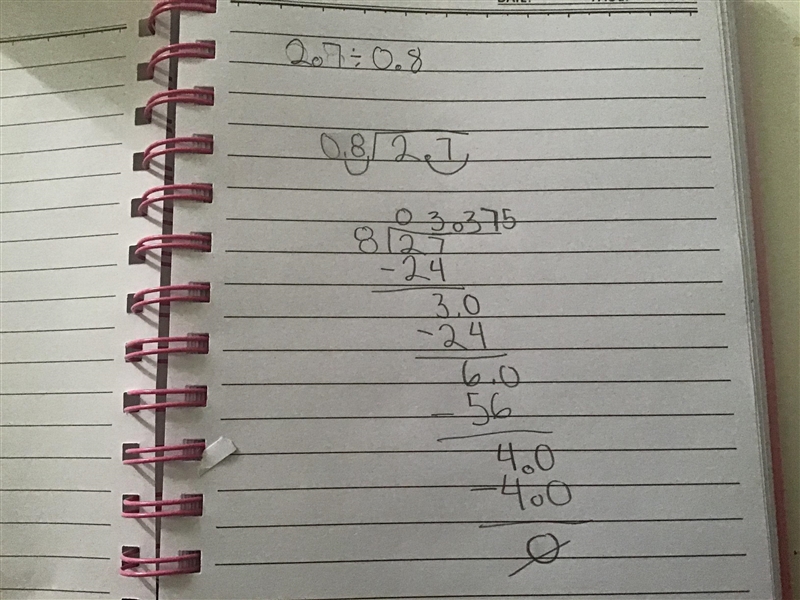 2.7÷0.8
0.8 2.7
0 3.375
8 27
-24
3.0
-24
6.0
-56
4.0
-4.0
0